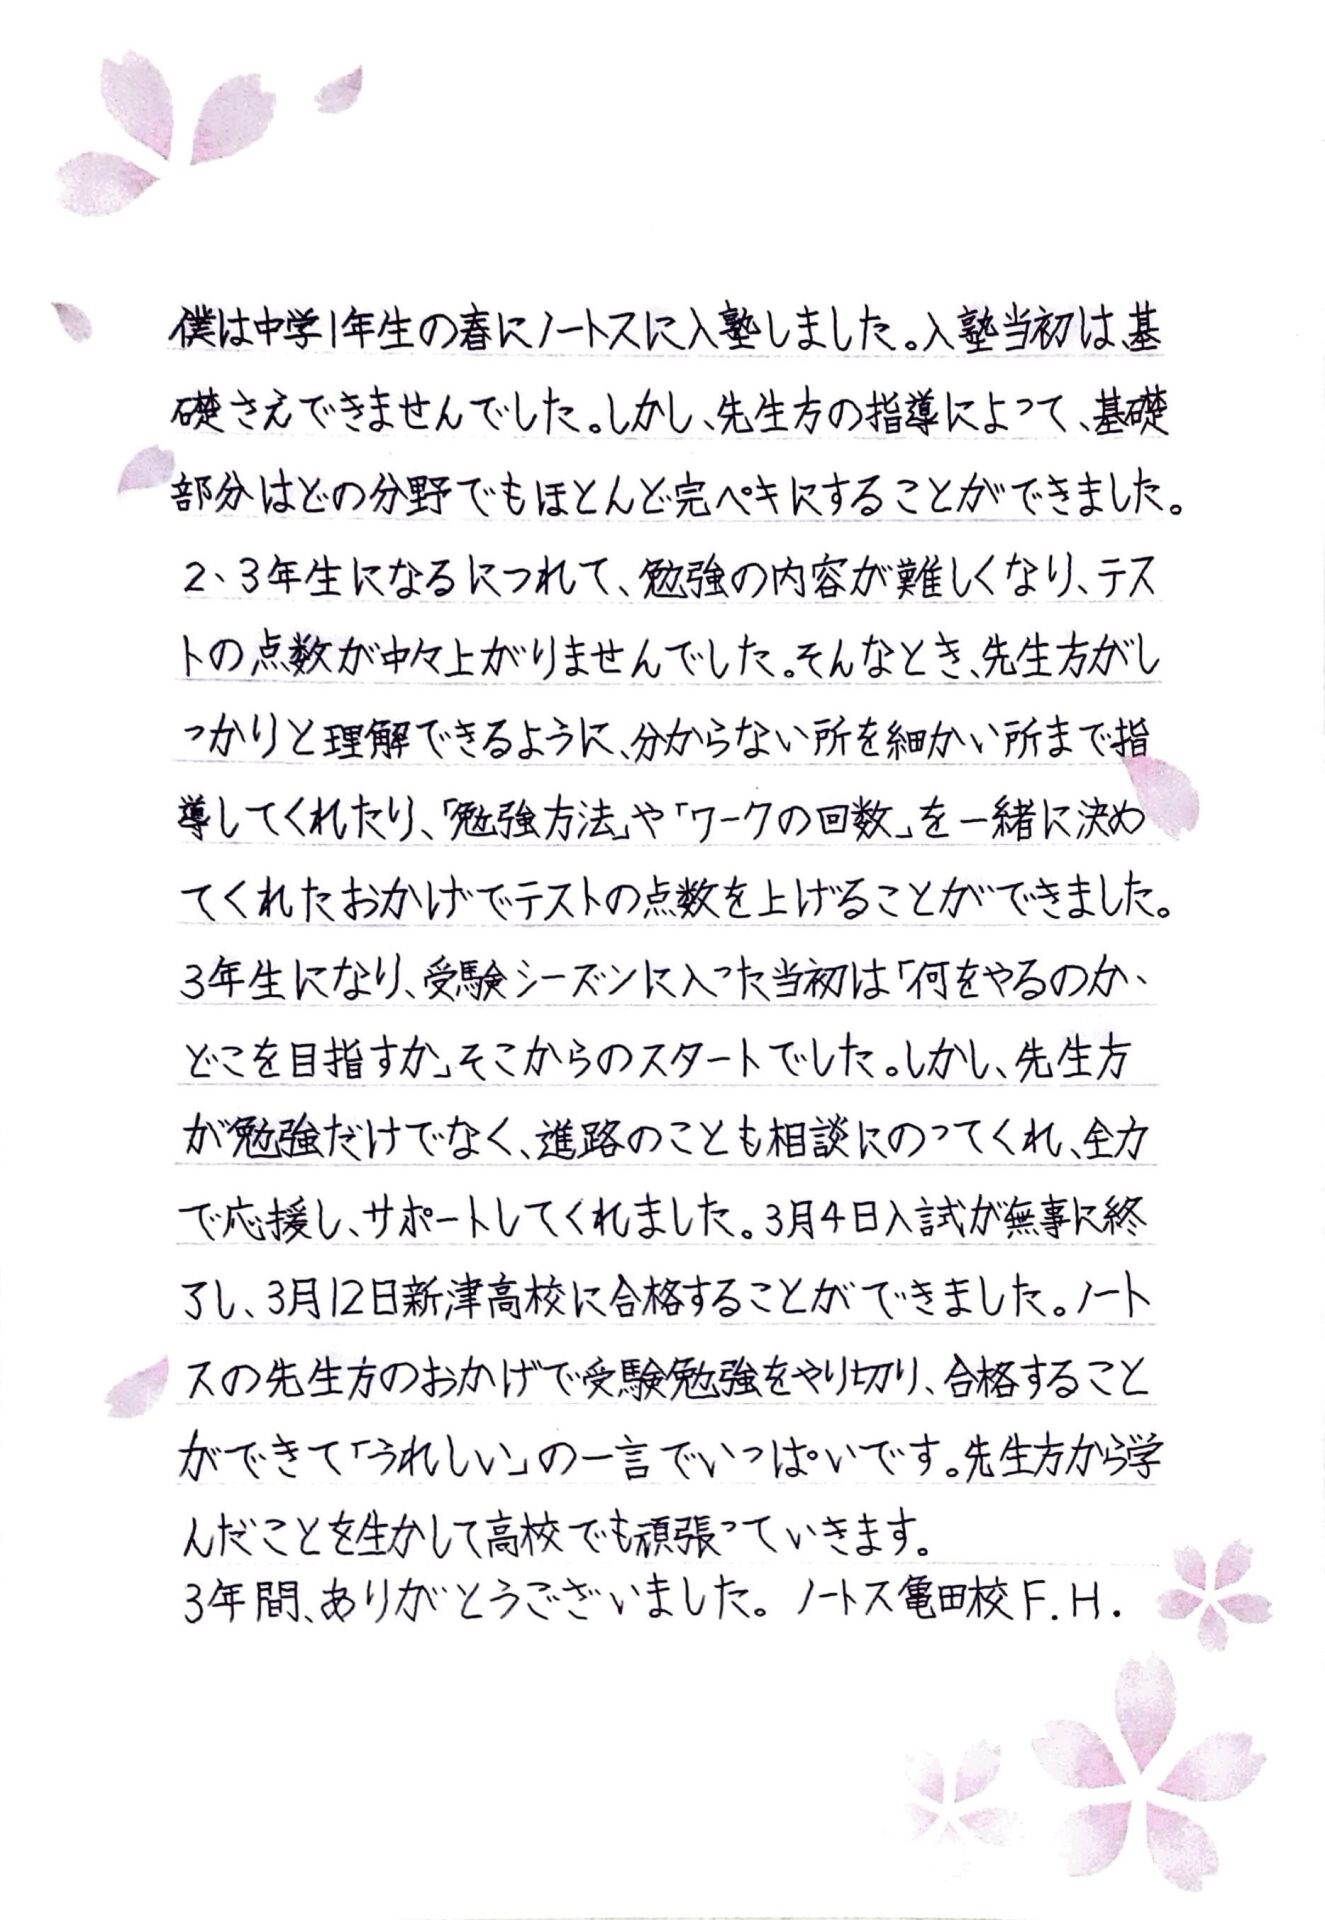 僕は中学1年生の春にノートスに入塾しました。入塾当初は、基
礎さえできませんでした。しかし、先生方の指導によって、基礎
部分はどの分野でもほとんど完ペキにすることができました。
2、3年生になるにつれて、勉強の内容が難しくなり、テス
トの点数が中々上がりませんでした。そんなとき、先生方がし
っかりと理解できるように、分からない所を細かい所まで指
導してくれたり、「勉強方法」や「ワークの回数」を一緒に決め
てくれたおかげでテストの点数を上げることができました。
3年生になり、受験シーズンに入った当初は「何をやるのか、
どこを目指すか」そこからのスタートでした。しかし、先生方
が勉強だけでなく、進路のことも相談にのってくれ、全力
で応援し、サポートしてくれました。3月4日入試が無事に終
了し、3月12日新津高校に合格することができました。ノート
スの先生方のおかげで受験勉強をやり切り、合格すること
ができて「うれしい」の一言でいっぱいです。先生方から学
んだことを生かして高校でも頑張っていきます。
3年間、ありがとうございました。 ノートス亀田校F.H.